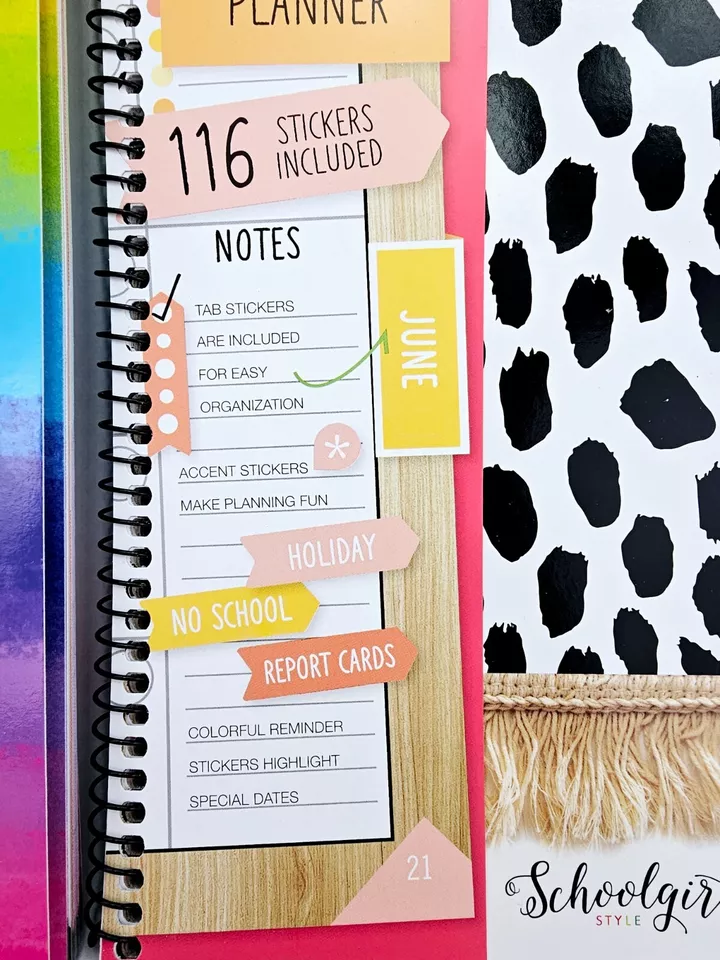 PLANNER
116
STICKERS
INCLUDED
NOTES
TAB STICKERS
ARE INCLUDED
FOR EASY
ORGANIZATION
JUNE
ACCENT STICKERS
MAKE PLANNING FUN
HOLIDAY
NO SCHOOL
REPORT CARDS
COLORFUL REMINDER
STICKERS HIGHLIGHT
SPECIAL DATES
21
Schoolgir
STYLE